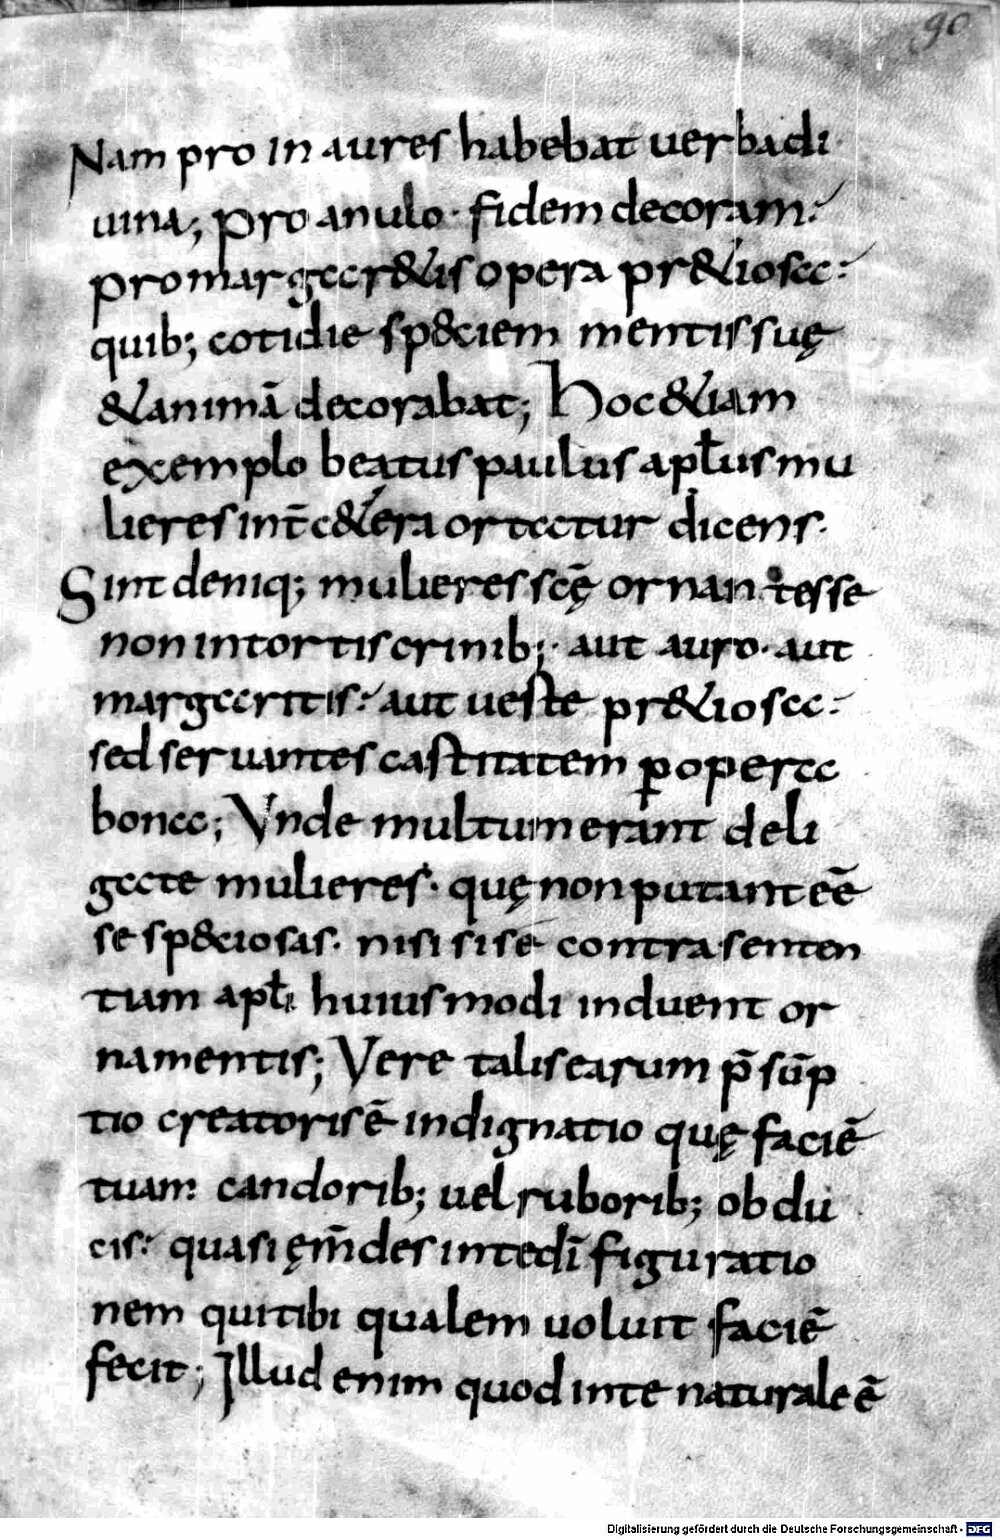 90
Nam pro in aures habebat uerba di
uina; pro anulo· fidem decoram:
pro margar&is opera pr&iosa:
quib; cotidie sp&ciem mentis suę
&animā decorabat; Hoc &iam
exemplo beatus paulus aptͬus mu
lieres int̄ c&era ortatur dicens·
Sint deniq; mulieres scę̄ ornantes se
non intortis crinib;· aut auro· aut
margaritis: aut ueste pr&iosa:
sed seruantes castitatem ꝑ opera
bona; Vnde multum errant deli
gate mulieres· quę non putant eē
se sp&ciosas· nisi si sē contra senten
tiam apłi huiusmodi induent or
namentis; Vere talis earum p̄sūp
tio creatoris ē indignatio quę faciē
tuam candorib; uel ruborib; obdu
cis: quasi ęm̄des inte dī figuratio
nem qui tibi qualem uoluit faciē
fecit; Illud enim quod inte naturale ē
Digitalisierung gefördert durch die Deutsche Forschungsgemeinschaft - DFG